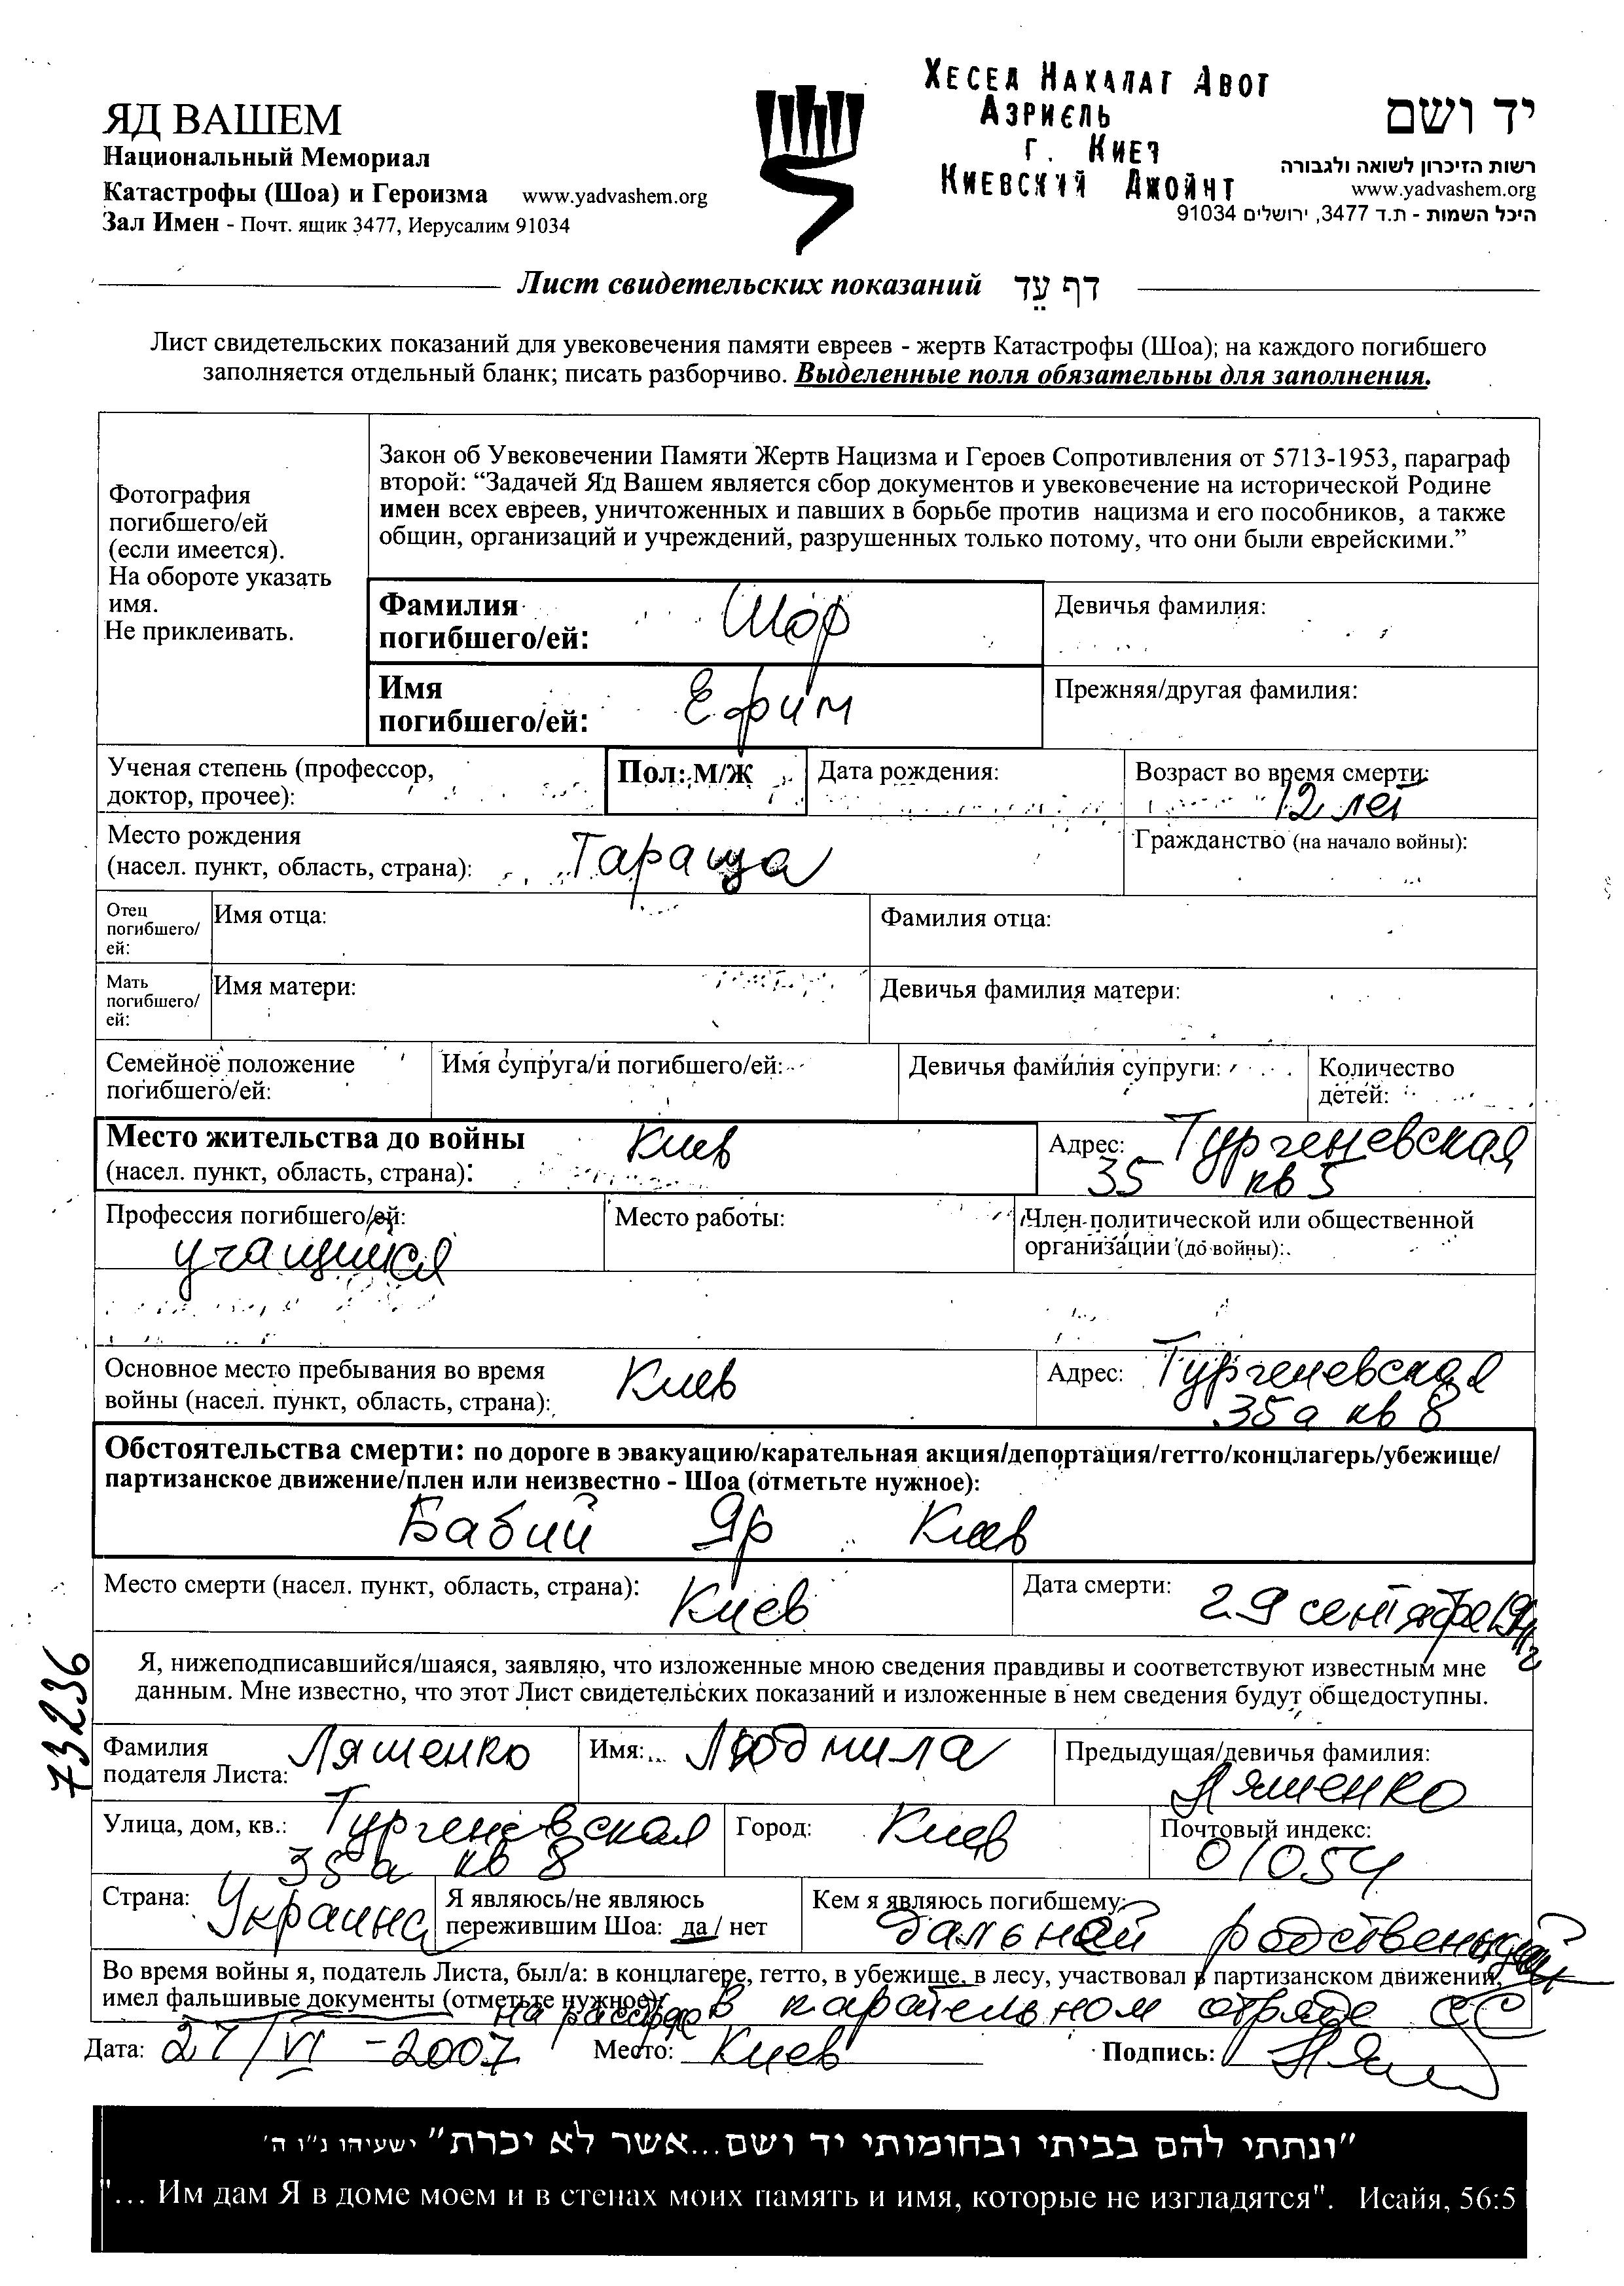 ЯД ВАШЕМ
Национальный Мемориал
Катастрофы (Шоа) и Героизма www.yadvashem.org
Зал Имен - Почт. ящик 3477, Иерусалим 91034
ХЕСЕД НАХАЛАТ АВОТ
АЗРИЄЛЬ
Г. КИЕЧ
КИЕВСКИЙ ДЖОЙНТ
יד ושם
רשות הזיכרון לשואה ולגבורה
www.yadvashem.org
היכל השמות - ת.ד 3477, ירושלים 91034
Лист свидетельских показаний דף עֵד
Лист свидетельских показаний для увековечения памяти евреев - жертв Катастрофы (Шоа); на каждого погибшего
заполняется отдельный бланк; писать разборчиво. Выделенные поля обязательны для заполнения.
Фотография
погибшего/ей
(если имеется).
На обороте указать
имя.
Не приклеивать.
Закон об Увековечении Памяти Жертв Нацизма и Героев Сопротивления от 5713-1953, параграф
второй: “Задачей Яд Вашем является сбор документов и увековечение на исторической Родине
имен всех евреев, уничтоженных и павших в борьбе против нацизма и его пособников, а также
общин, организаций и учреждений, разрушенных только потому, что они были еврейскими.”
Фамилия
погибшего/ей: Шор
Девичья фамилия:
Имя
погибшего/ей: Ефим
Прежняя/другая фамилия:
Ученая степень (профессор,
доктор, прочее):
Пол: М/Ж
Дата рождения:
Возраст во время смерти:
12 лет
Место рождения
(насел. пункт, область, страна): Тараща
Гражданство (на начало войны):
Отец
погибшего/
ей:
Имя отца:
Фамилия отца:
Мать
погибшего/
ей:
Имя матери:
Девичья фамилия матери:
Семейное положение
погибшего/ей:
Имя супруга/и погибшего/ей:
Девичья фамилия супруги:
Количество
детей:
Место жительства до войны Киев
(насел. пункт, область, страна):
Адрес: Тургеневская
35 кв 5
Профессия погибшего/ей:
учащийся
Место работы:
Член политической или общественной
организации (до войны):
Основное место пребывания во время
войны (насел. пункт, область, страна): Киев
Адрес: Тургеневская
35а кв 8
Обстоятельства смерти: по дороге в эвакуацию/карательная акция/депортация/гетто/концлагерь/убежище/
партизанское движение/плен или неизвестно - Шоа (отметьте нужное):
Бабий Яр Киев
Место смерти (насел. пункт, область, страна): Киев
Дата смерти: 29 сентября 1941г
73236
Я, нижеподписавшийся/шаяся, заявляю, что изложенные мною сведения правдивы и соответствуют известным мне
данным. Мне известно, что этот Лист свидетельских показаний и изложенные в нем сведения будут общедоступны.
Фамилия
подателя Листа: Ляшенко
Имя: Людмила
Предыдущая/девичья фамилия:
Ляшенко
Улица, дом, кв.: Тургеневская
35а кв 8
Город: Киев
Почтовый индекс:
01054
Страна: Украина
Я являюсь/не являюсь
пережившим Шоа: да / нет
Кем я являюсь погибшему:
дальней родственницей
Во время войны я, податель Листа, был/а: в концлагере, гетто, в убежище, в лесу, участвовал в партизанском движении,
имел фальшивые документы (отметьте нужное):
в карательном отряде СС
Дата: 27/VI - 2007 Место: Киев Подпись:
"ונתתי להם בביתי ובחומותי יד ושם...אשר לא יכרת" ישעיהו נ"ו ה'
"... Им дам Я в доме моем и в стенах моих память и имя, которые не изгладятся". Исайя, 56:5